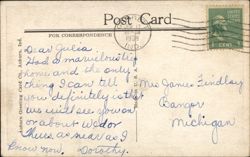 Post Card
FOR CORRESPONDENCE
1938
IND.
1 CENT
Dear Julia
Had a marvelous trip
home and the only
thing I can tell
you definitely is that
we will see you on
or about
Thurs. as near as I
know now. Dorothy.
Mrs James Findlay
Bangor
Michigan